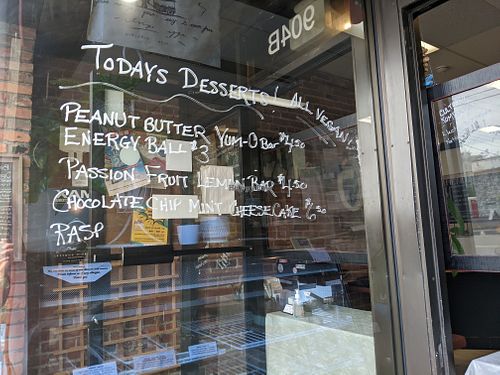 904B
TODAYS DESSERTS! ALL VEGAN
PEANUT BUTTER YUM-O BAR $4.50
ENERGY BALL $3
PASSION FRUIT LEMON BAR $4.50
CHOCOLATE CHIP MINT CHEESECAKE $6.50
RASP